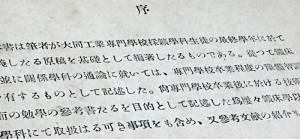 序
書は筆者が大同工業專門學校採鑛學科生徒の最終學年に於て
義したる原稿を基礎として編著したものである。從つて鑛床
並に關係學科の通論に就いては、專門學校卒業程度の
有するものとして記述した。尙專門學校卒業後に於ける技術
而の勉學の參考書たるを目的として記述した爲
學科にて取扱はる可き事項をも含め、又參考文献の紹介